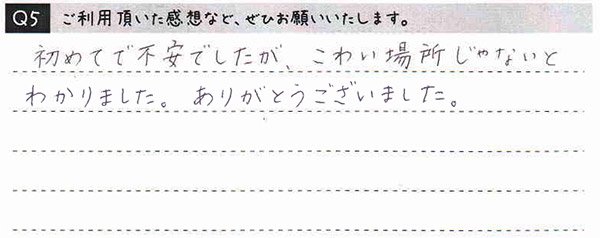 Q5 ご利用頂いた感想など、ぜひお願いいたします。
初めてで不安でしたが、こわい場所じゃないと
わかりました。ありがとうございました。